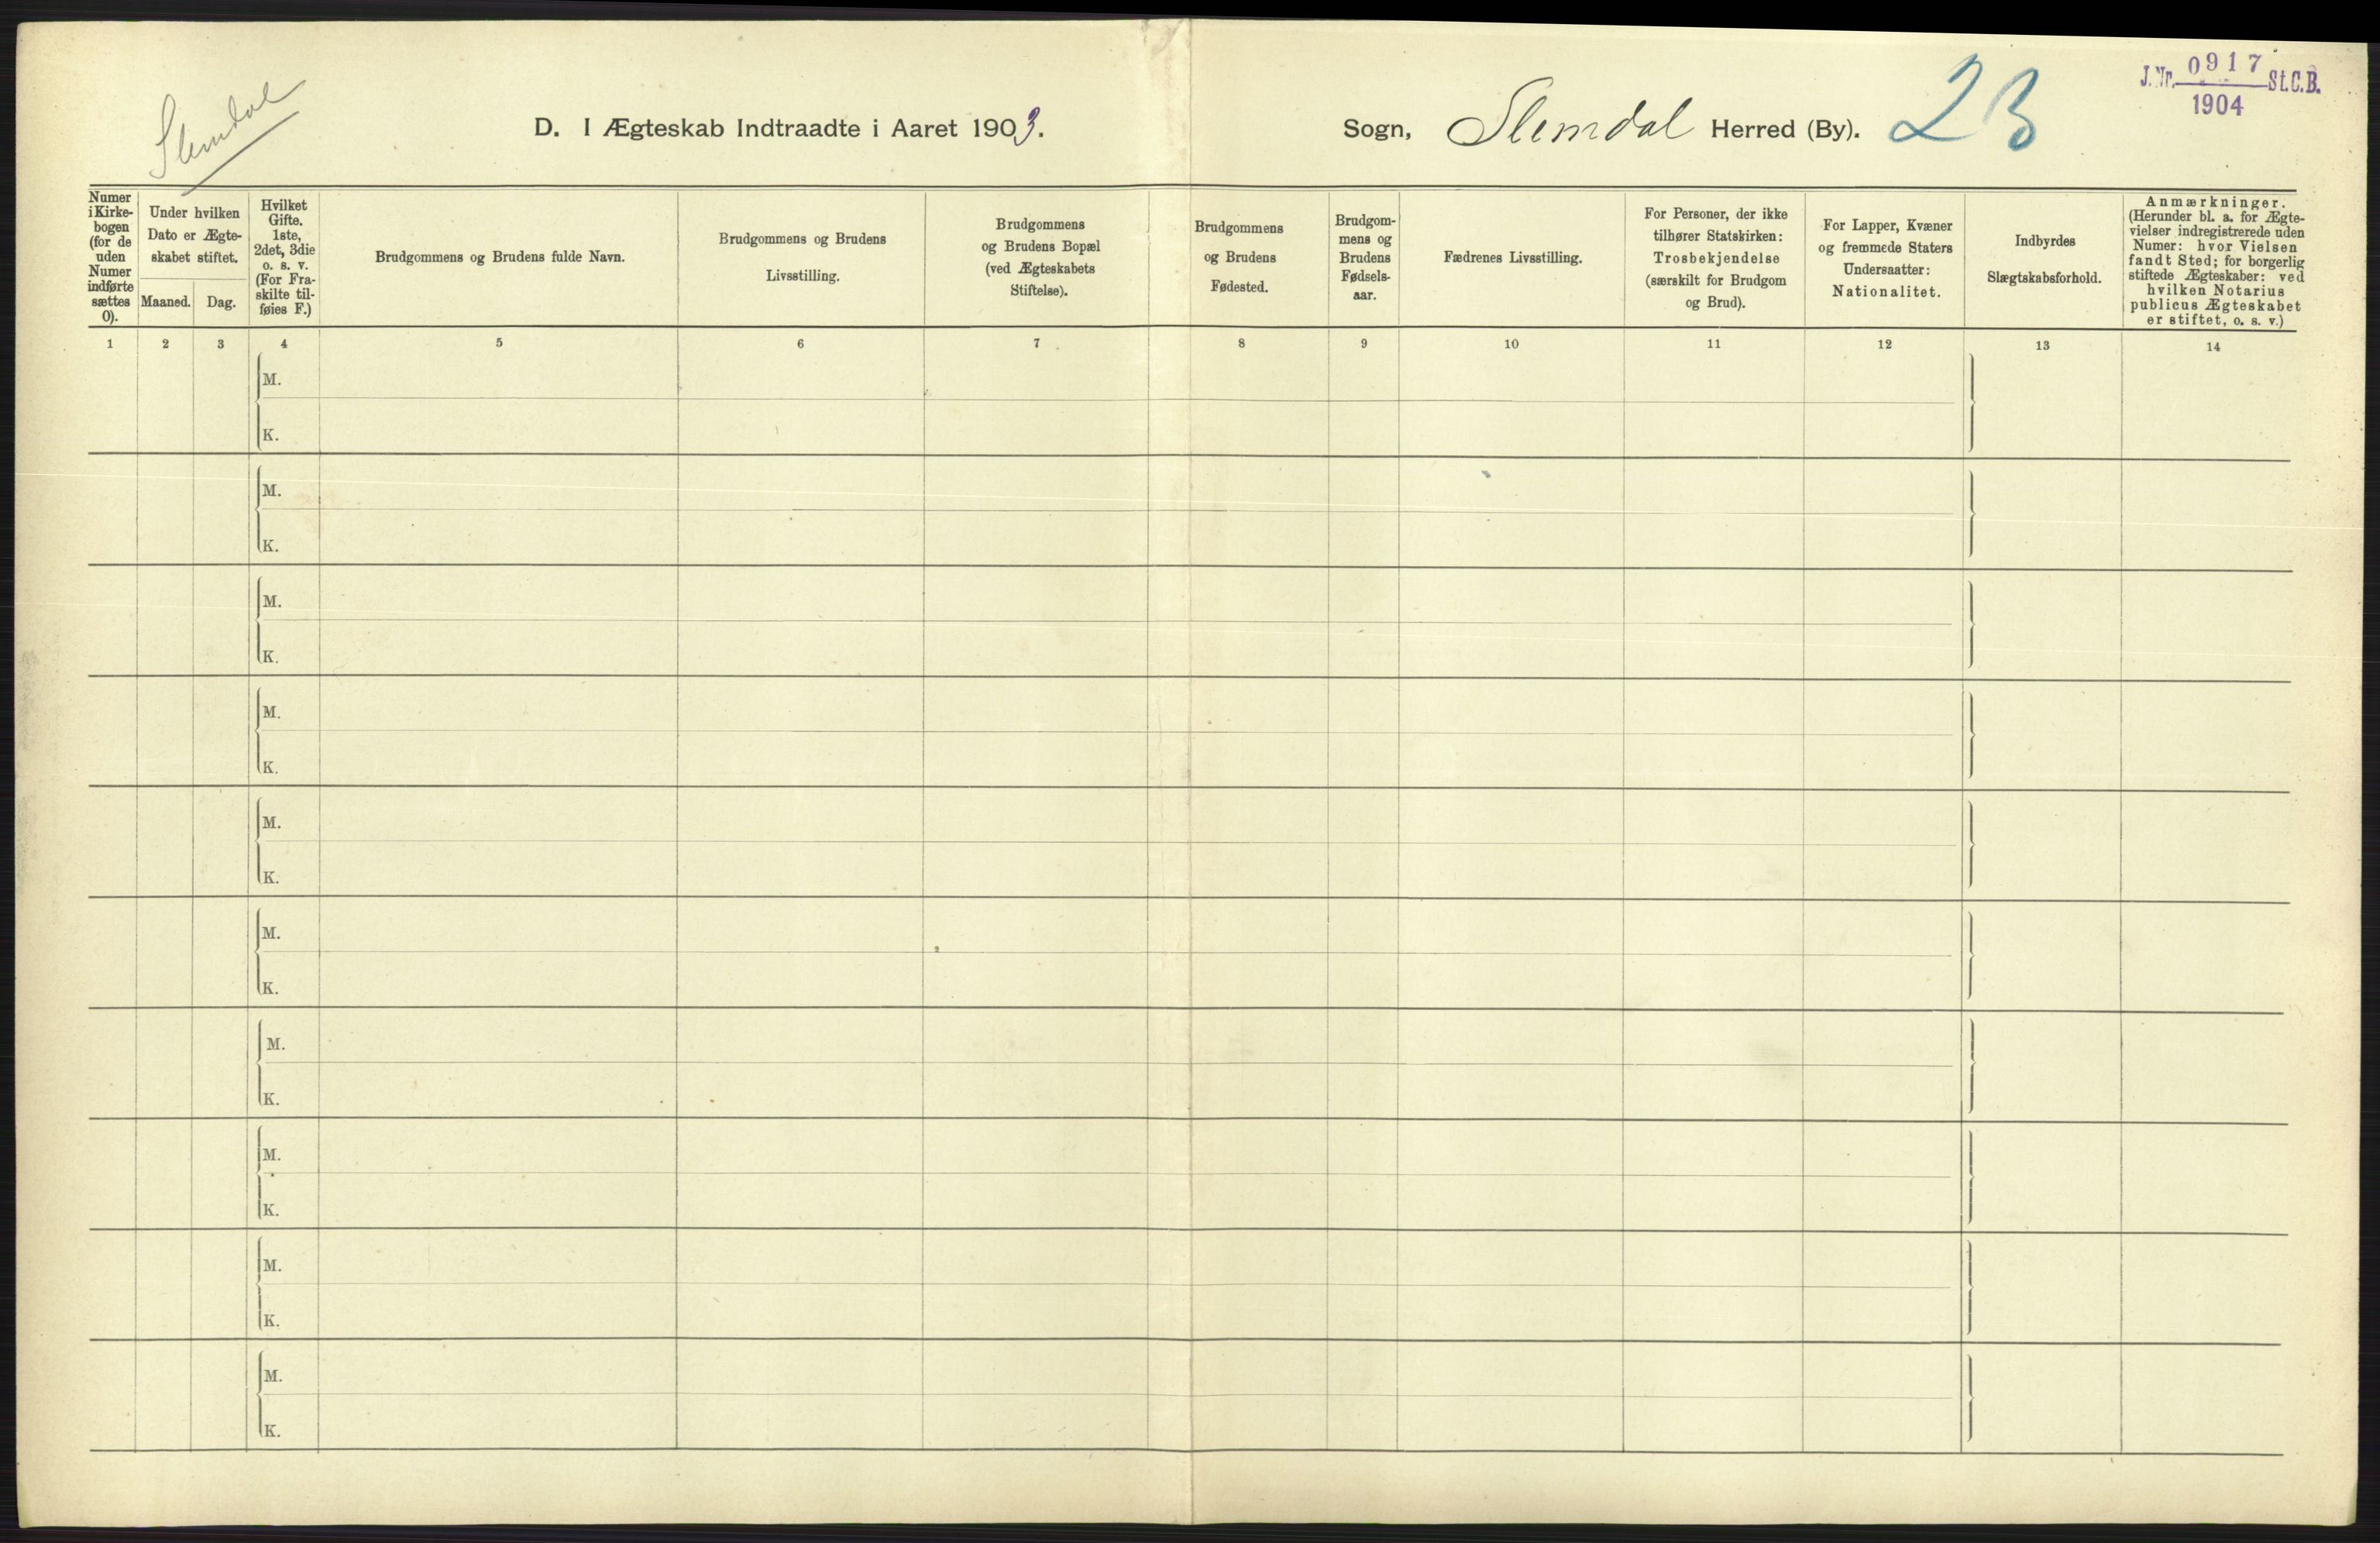 Slemdal
D. I Ægteskab Indtraadte i Aaret 1903.
Sogn, Slemdal Herred (By). 23
J.Nr. 0917 St.C.B.
1904
Numer
i Kirke-
bogen
(for de
uden
Numer
indførte
sættes
0).
Under hvilken
Dato er Ægte-
skabet stiftet.
Maaned. Dag.
Hvilket
Gifte.
1ste,
2det, 3die
o. s. v.
(For Fra-
skilte til-
føies F.)
Brudgommens og Brudens fulde Navn.
Brudgommens og Brudens
Livsstilling.
Brudgommens
og Brudens Bopæl
(ved Ægteskabets
Stiftelse).
Brudgommens
og Brudens
Fødested.
Brudgom-
mens og
Brudens
Fødsels-
aar.
Fædrenes Livsstilling.
For Personer, der ikke
tilhører Statskirken:
Trosbekjendelse
(særskilt for Brudgom
og Brud).
For Lapper, Kvæner
og fremmede Staters
Undersaatter:
Nationalitet.
Indbyrdes
Slægtskabsforhold.
Anmærkninger.
(Herunder bl. a. for Ægte-
vielser indregistrerede uden
Numer: hvor Vielsen
fandt Sted; for borgerlig
stiftede Ægteskaber: ved
hvilken Notarius
publicus Ægteskabet
er stiftet, o. s. v.)
1 2 3 4 5 6 7 8 9 10 11 12 13 14
M.
K.
M.
K.
M.
K.
M.
K.
M.
K.
M.
K.
M.
K.
M.
K.
M.
K.
M.
K.